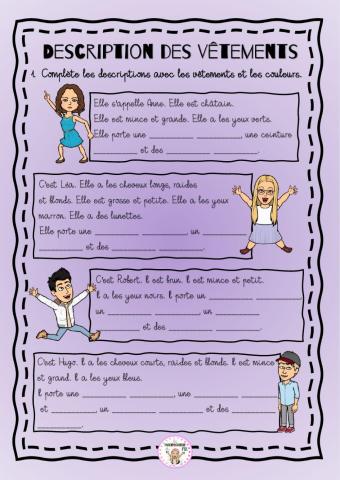 DESCRIPTION DES VÊTEMENTS
1. Complète les descriptions avec les vêtements et les couleurs.
Elle s'appelle Anne. Elle est châtain.
Elle est mince et grande. Elle a les yeux verts.
Elle porte une ________ ________, une ceinture
________ et des ________ ________.
C'est Léa. Elle a les cheveux longs, raides
et blonds. Elle est grosse et petite. Elle a les yeux
marron. Elle a des lunettes.
Elle porte une ________ ________, un ________
________ et des ________ ________.
C'est Robert. Il est brun. Il est mince et petit.
Il a les yeux noirs. Il porte un ________ ________
un ________ ________, un ________
________ et des ________ ________.
C'est Hugo. Il a les cheveux courts, raides et blonds. Il est mince
et grand. Il a les yeux bleus.
Il porte une ________ ________, une ________ ________
et ________, un ________ ________ et des ________
________.